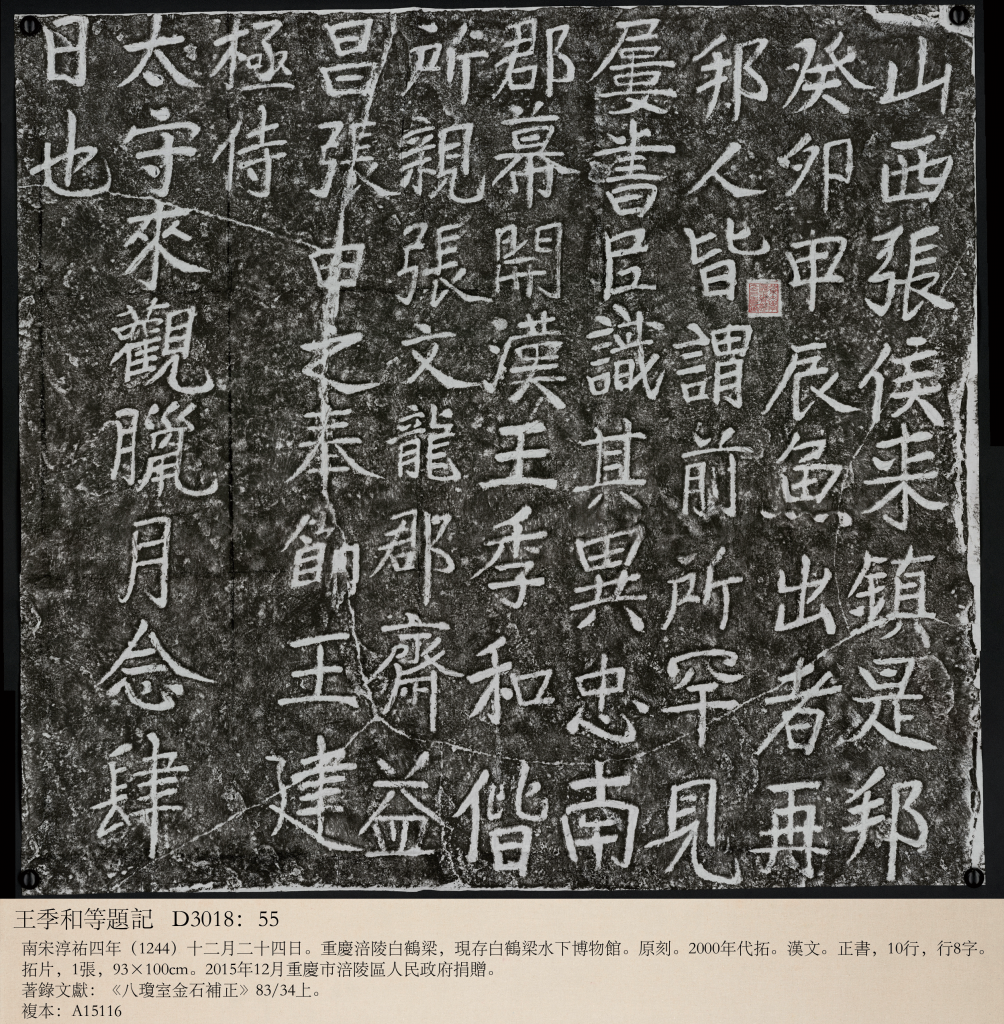 山西張侯來鎮是邦
癸卯甲辰魚出者再
邦人皆謂前所罕見
屢書臣識其異忠南
郡幕開漢王季和偕
所親張文龍郡齋益
昌張申之奉節王建
極侍
太守來觀臘月念肆
日也
王季和等題記 D3018：55
南宋淳祐四年（1244）十二月二十四日。重慶涪陵白鶴梁，現存白鶴梁水下博物館。原刻。2000年代拓。漢文。正書，10行，行8字。
拓片，1張，93×100cm。2015年12月重慶市涪陵區人民政府捐贈。
著錄文獻：《八瓊室金石補正》83/34上。
複本：A15116